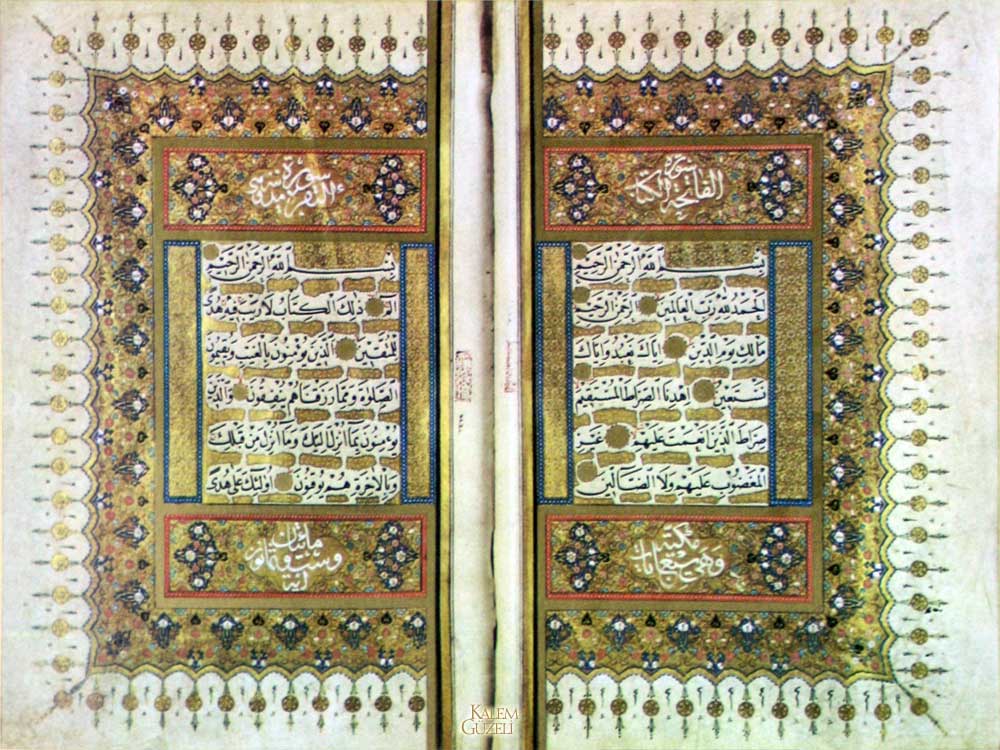 سورة
الفاتحة الكتاب
بسم الله الرحمن الرحيم
الحمد لله رب العالمين الرحمن الرحيم
مالك يوم الدين اياك نعبد واياك
نستعين اهدنا الصراط المستقيم
صراط الذين انعمت عليهم غير
المغضوب عليهم ولا الضالين
مكية
وهي سبع ايات
سورة
البقرة مدنية
بسم الله الرحمن الرحيم
الم ذلك الكتاب لا ريب فيه هدى
للمتقين الذين يؤمنون بالغيب ويقيمون
الصلوة ومما رزقناهم ينفقون والذين
يؤمنون بما انزل اليك وما انزل من قبلك
وبالاخرة هم يوقنون اولئك على هدى
مايتان
وست وثمانون
آية
KALEM
GÜZELİ